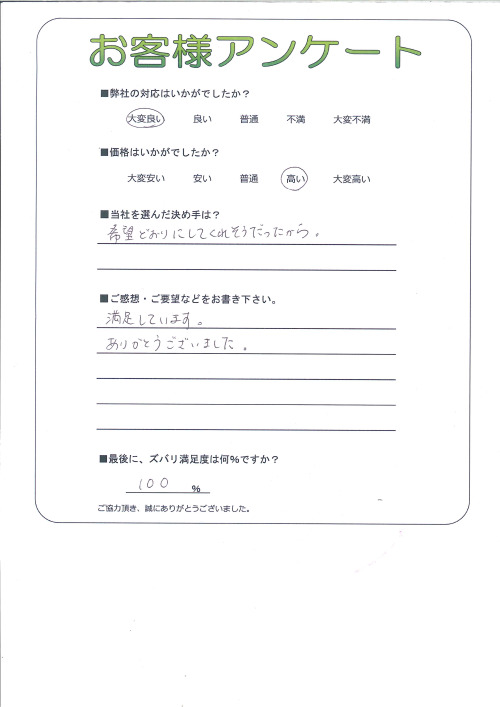 お客様アンケート
■弊社の対応はいかがでしたか？
大変良い 良い 普通 不満 大変不満
■価格はいかがでしたか？
大変安い 安い 普通 高い 大変高い
■当社を選んだ決め手は？
希望どおりにしてくれそうだったから。
■ご感想・ご要望などをお書き下さい。
満足しています。
ありがとうございました。
■最後に、ズバリ満足度は何%ですか？
100 %
ご協力頂き、誠にありがとうございました。